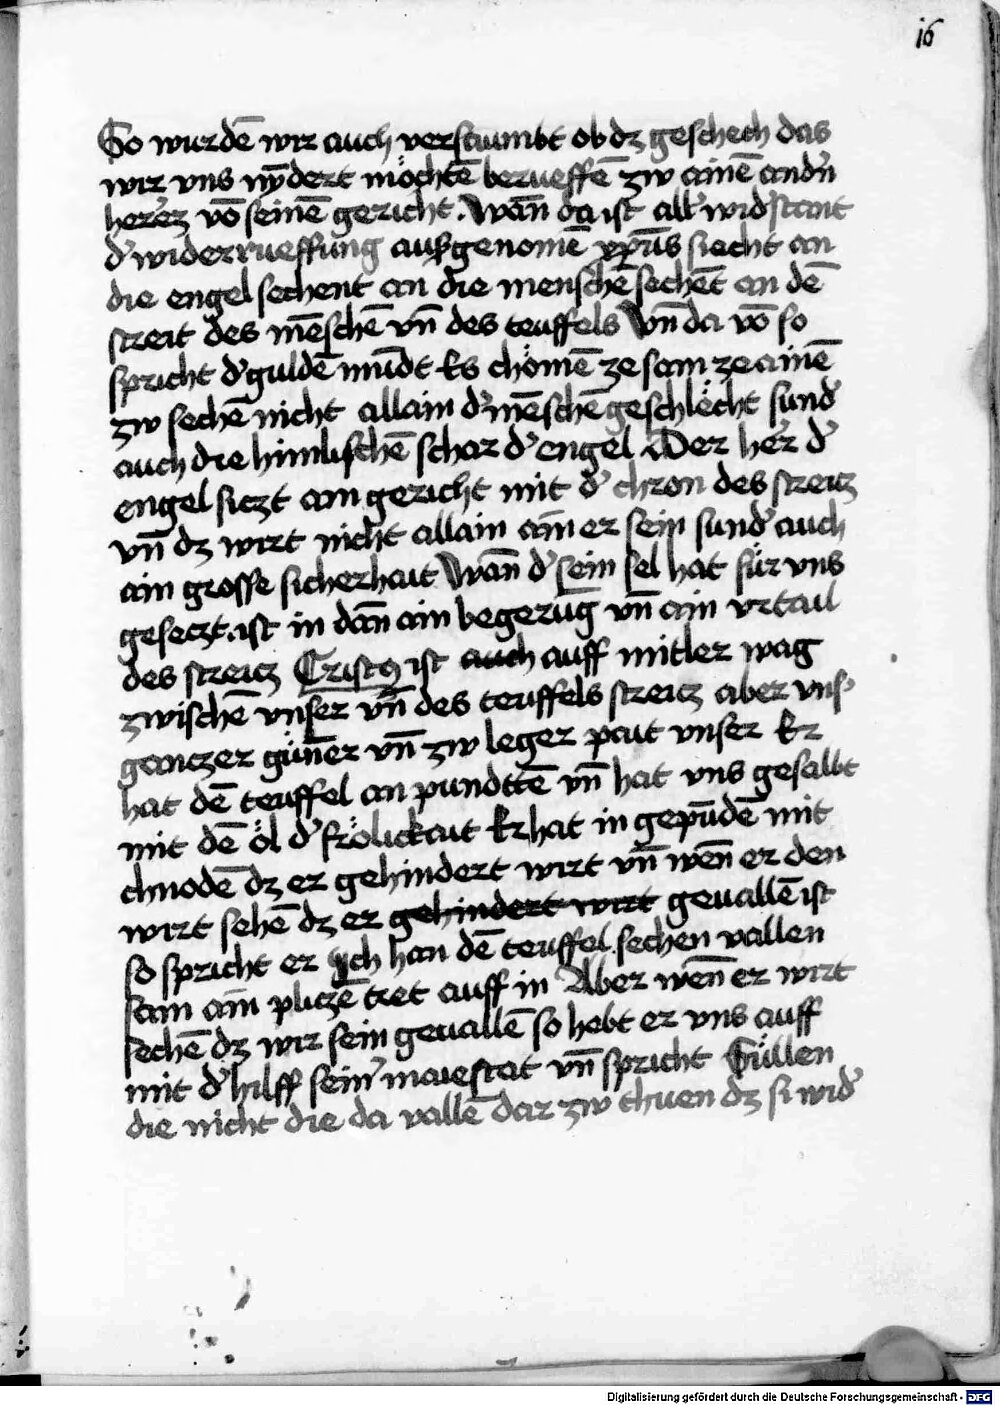 16
So wurdē wir auch verstumbt ob dz geschech das
wir vns nÿdert möchtē berueffē zw ainē andn̄
herez vō seinē gericht . Wan̄ da ist all' widstant
d' widerrueffung außgenomē xp̄us siecht an
die engel sechent an die menschē sechēt an dē
streit des mēschē vn̄ des teuffels Vn̄ da vō so
spricht d' guldē mūdt Es chömē ze sam ze ainē
zw sechē nicht allain d' mēschē geschlëcht sund'
auch die himlischē schar d' engel Der her d'
engel siczt am gericht mit d' chron des streitz
vn̄ dz wirt nicht allain ain er sein sund' auch
ain grosse sicherhait Wan̄ d' sein sel hat für vns
gesetzt . ist in dan̄ ain begerūg vn̄ ain vrtail
des streitz Cristꝰ ist auch auff mitler wag
zwischē vnser vn̄ des teuffels streitz aber vns'
gantzer gün̄er vn̄ zw leger pait vnser Er
hat dē teuffel an pundttē vn̄ hat vns gesalbt
mit dē öl d' frölickait Er hat in gepūdē mit
chnodē dz er gehindert wirt vn̄ wen̄ er den
wirt sehē dz er gehindert wirt geuallē ist
so spricht er Ich han dē teuffel sechen vallen
sam ain pliczē tret auff in Aber wen̄ er wirt
sechē dz wir sein geuallē so hebt er vns auff
mit d' hilff sein' maiestat vn̄ spricht Süllen
die nicht die da vallē dar zw thuen dz si wid'
Digitalisierung gefördert durch die Deutsche Forschungsgemeinschaft - DFG